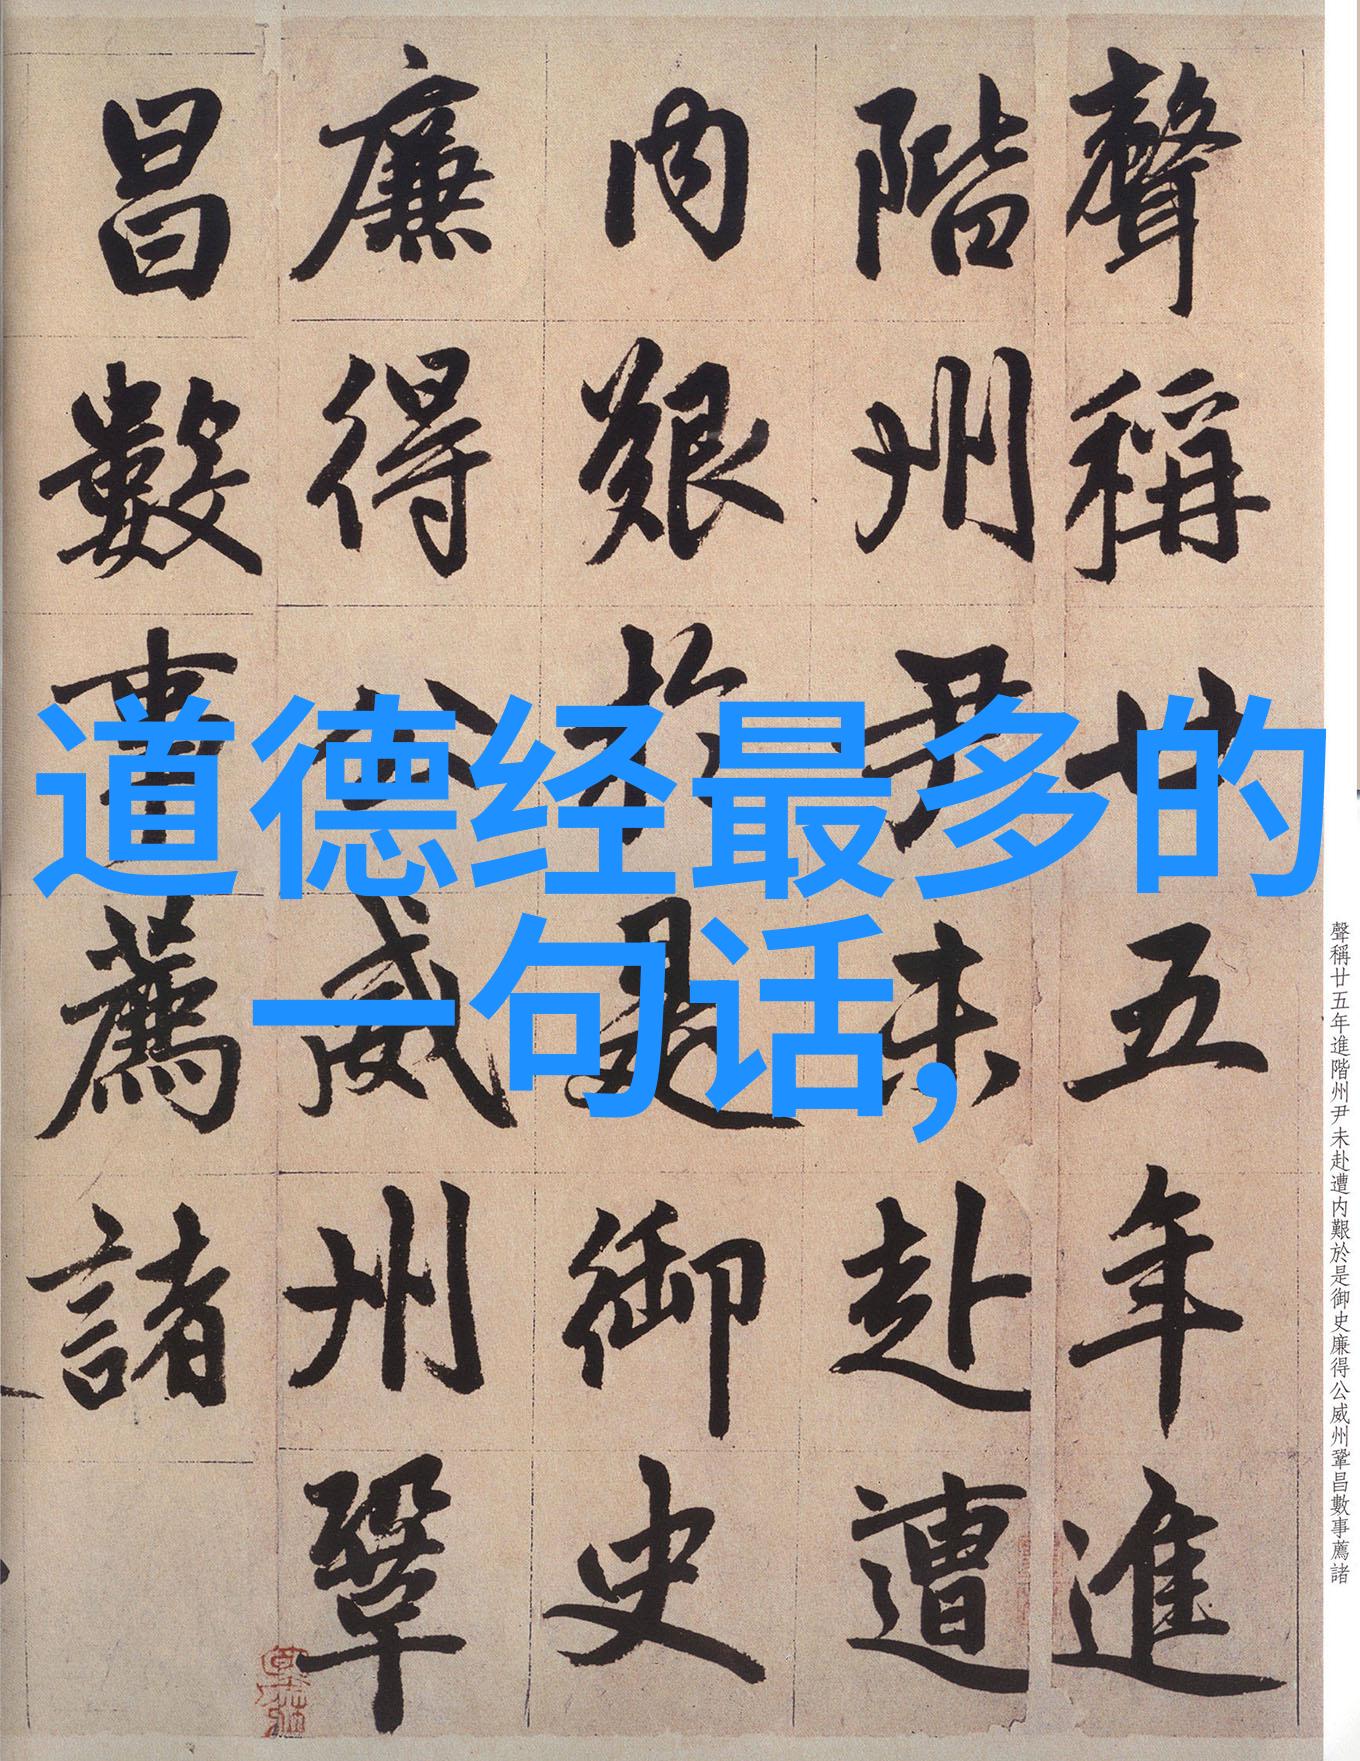 聲稱廿五年進
階州尹未赴遭
内艱於是御史
廉得公威州鞏
昌數事薦諸
道德经最多的
一句话,
聲稱廿五年進階州尹未赴遭内艱於是御史廉得公威州鞏昌數事薦諸